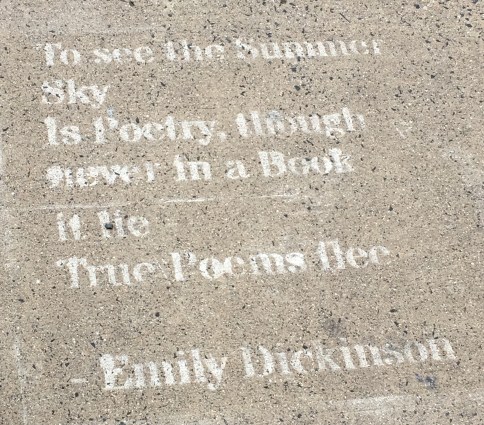 To see the Summer
Sky
Is Poetry, though
never in a Book
it lie
True Poems flee
- Emily Dickinson